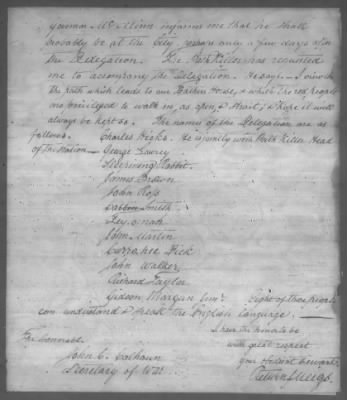 governor McMinn informs me that he shall
probably be at the City, remain only a few days after
the Delegation. The Path Killer has requested
me to accompany the Delegation. He says - I view the
the path which leads to our Fathers House, & which the red people
are priviliged to walk on, as open & strait; & I hope it will
always be kept so. The names of the Delegation are as
follows. Charles Hicks. He is jointly with Path Killer Head
of the Nation - George Lowrey
Sleeping Rabbit.
James Brown
John Ross
Cabbin Smith
John Martin
Currohee Dick
John Walker
Richard Taylor
Gideon Morgan Junr. Eight of these people
can understand & speak the English language.
I have the honor to be
with great respect
your obedient Servant
Return J Meigs
The Honorable
John C. Calhoun
Secretary of War